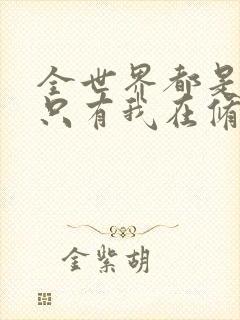 全世界都是
只有我在脩
金紫胡